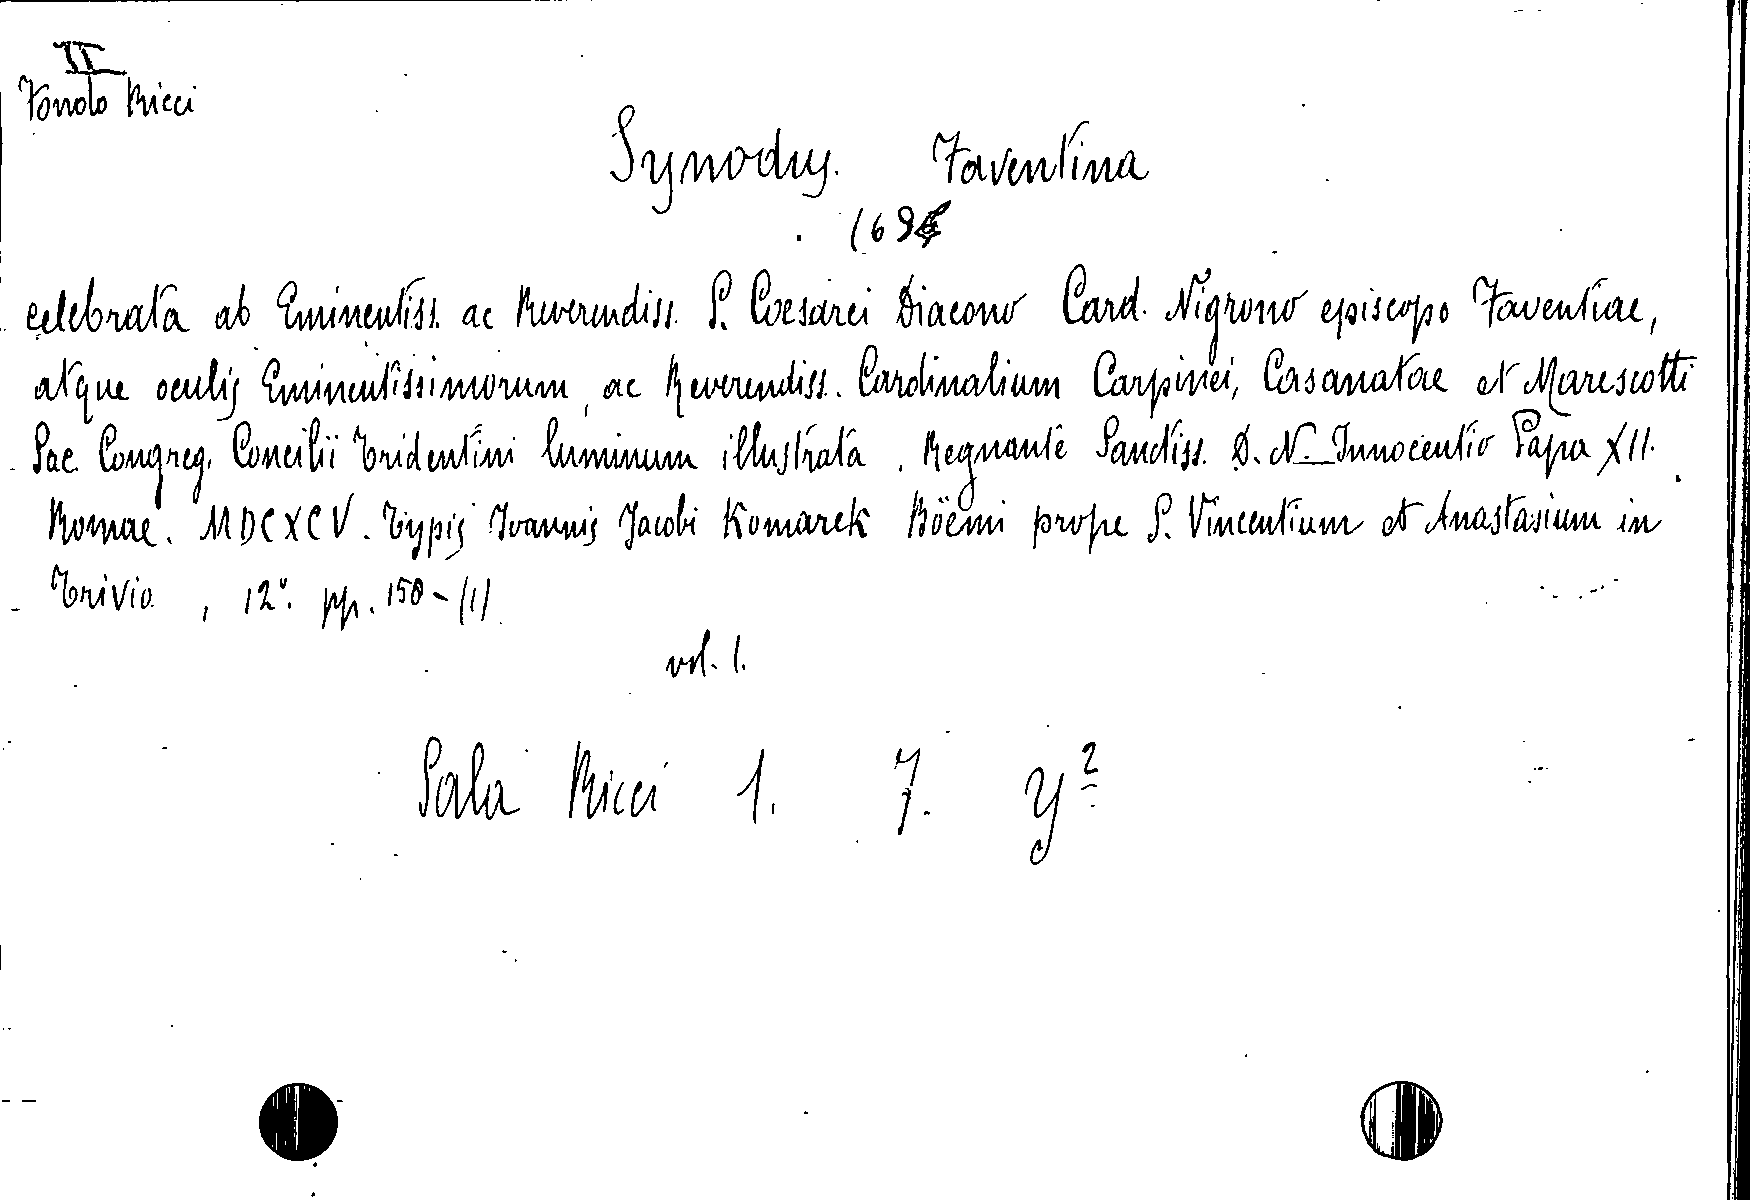 II
Fondo Ricci
Synodus. Faventina
celebrata ab Eminentiss. ac Reverendiss. S. Coesarei Diacono Card. Nigrono episcopo Faventiae,
atque oculis Eminentissimorum, ac Reverendiss. Cardinalium Carpinei, Casanatae et Marescotti
Sac. Congreg. Concilii Tridentini luminum illustrata. Regnante Sanctiss. D. N. Innocentio Papa XII.
Romae. MDCXCV. Typis Ioannis Jacobi Komarek Böemi prope S. Vincentium et Anastasium in
Trivio, 12°. pp. 158-(1)
vol. 1.
Sala Ricci 1. 7. Y²